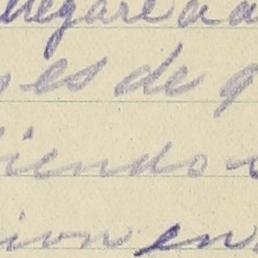 llegaré a a
es de
iendo
ion en